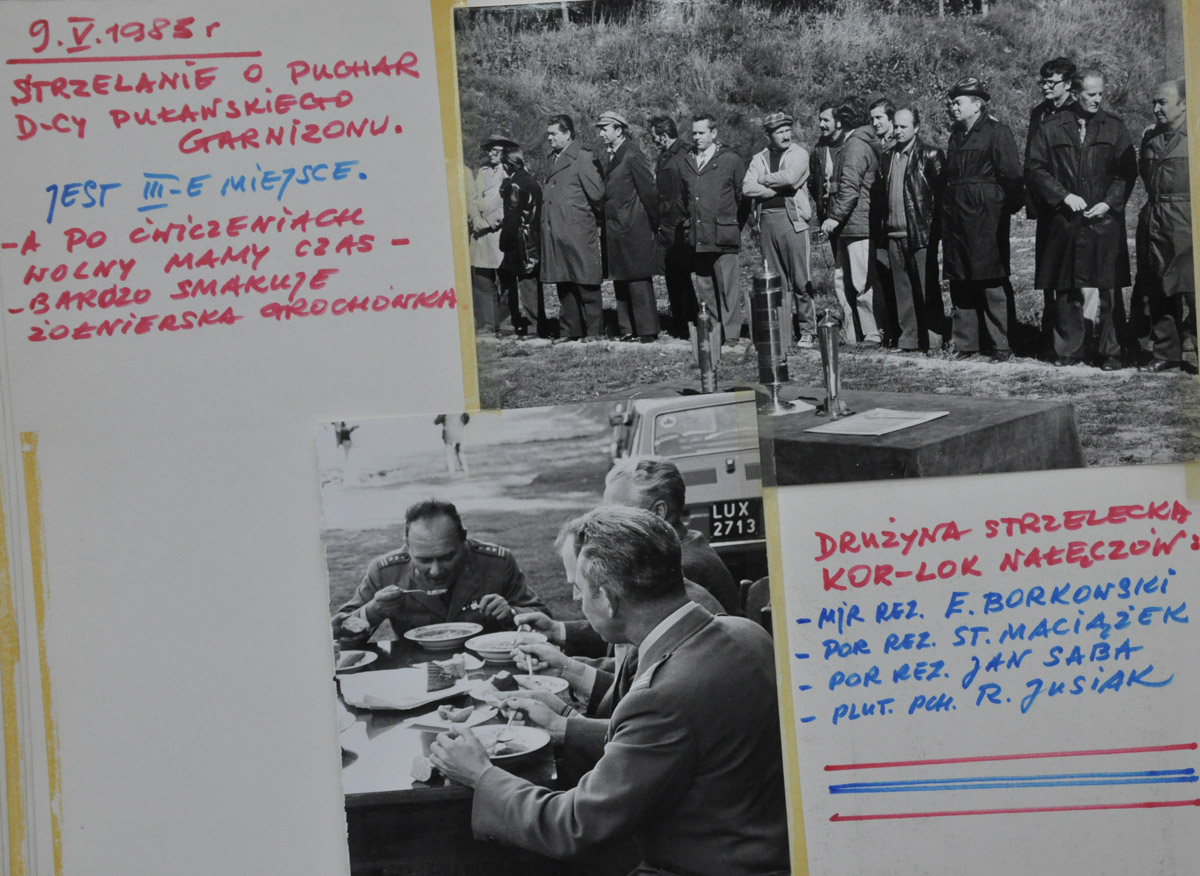 9.V.1985 r
STRZELANIE O PUCHAR
D-CY PUŁAWSKIEGO
GARNIZONU.
JEST III-E MIEJSCE.
-A PO ĆWICZENIACH
WOLNY MAMY CZAS -
-BARDZO SMAKUJE
ŻOŁNIERSKA GROCHÓWKA
LUX
2713
DRUŻYNA STRZELECKA
KOR-LOK NAŁĘCZÓW:
- MJR REZ. E. BORKOWSKI
- POR REZ. ST. MACIĄŻEK
- POR REZ. JAN SABA
- PLUT. PCH. R. JUSIAK